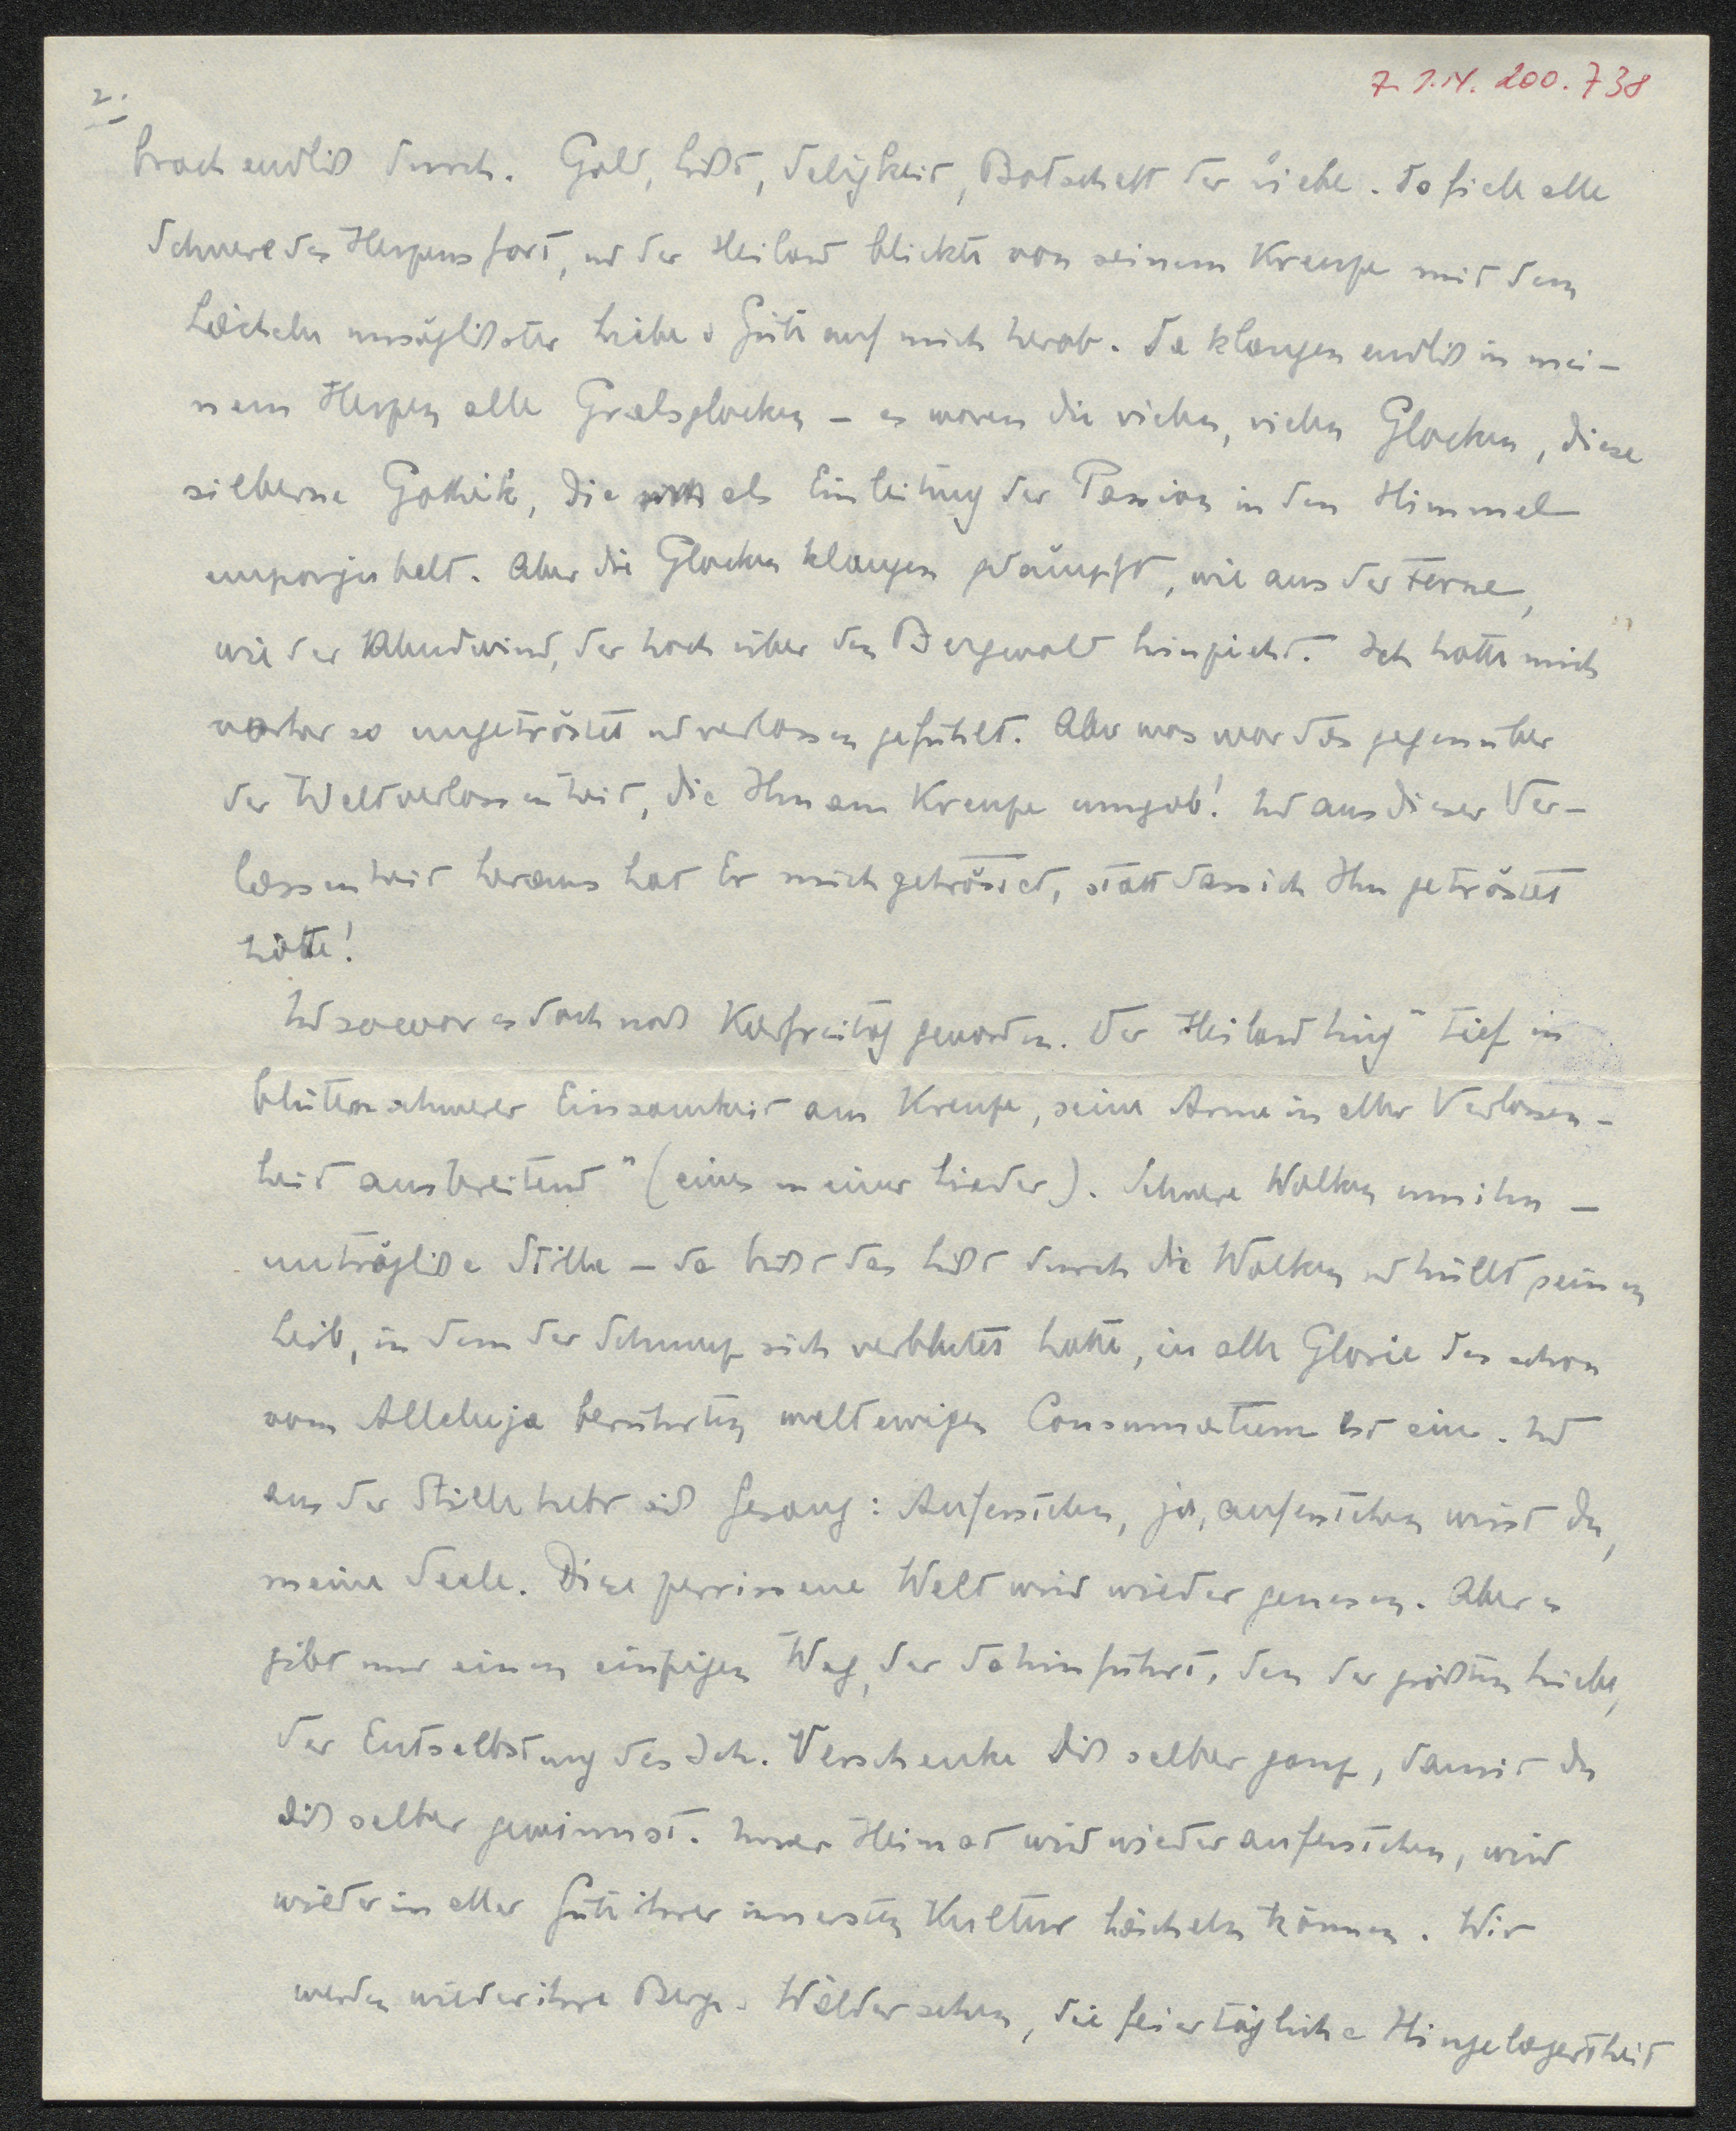 7. I.N. 200.738
2.
brach endlich durch. Gold, Licht, Seligkeit, Botschaft der Liebe. Da fiele alle
Schwere des Herzens fort, und der Heiland blickte von seinem Kreuze mit dem
Lächeln unsäglichster Liebe u Güte auf mich herab. Da klangen endlich in mei-
nem Herzen alle Gralsglocken – es waren die vielen, vielen Glocken, diese
silberne Gothik, die als Einleitung der Passion in den Himmel
emporjubelt. Aber die Glocken klangen gedämpft, wie aus der Ferne,
wie der Abendwind, der hoch über den Bergwald hinzieht. Ich hatte mich
vorher so ungetröstet und verlassen gefühlt. Aber was war das gegenüber
der Weltverlassenheit, die Ihn am Kreuze umgab! Und aus dieser Ver-
lassenheit heraus hat Er mich getröstet, statt dass ich Ihn getröstet
hätte!
Und so war es doch noch Karfreitag geworden. Der Heiland hing "tief in
blütenschwerer Einsamkeit am Kreuze, seine Arme in aller Verlassen-
heit ausbreitend" (eines meiner Lieder). Schwere Wolken um ihn –
unträgliche Stille – da bricht das Licht durch die Wolken und hüllt seinen
Leib, in dem der Schmerz sich verblutet hatte, in alle Glorie des schon
vom Alleluja berührten weltewigen Consumatum est ein. Und
aus der Stille hebt sich Gesang: Auferstehen, ja, auferstehen wirst du,
meine Seele. Diese zerrissene Welt wird wieder genesen. Aber es
gibt nur einen einzigen Weg, der dahin führt, den der größten Liebe,
der Entselbstung des Ich. Verschenke Dich selber ganz, damit du
dich selber gewinnst. Unser Heimat wird wieder auferstehen, wird
wieder in aller Güte ihrer innersten Kultur lächeln können. Wir
werden wieder ihre Berge u Wälder sehen, die feiertägliche Hingelagertheit